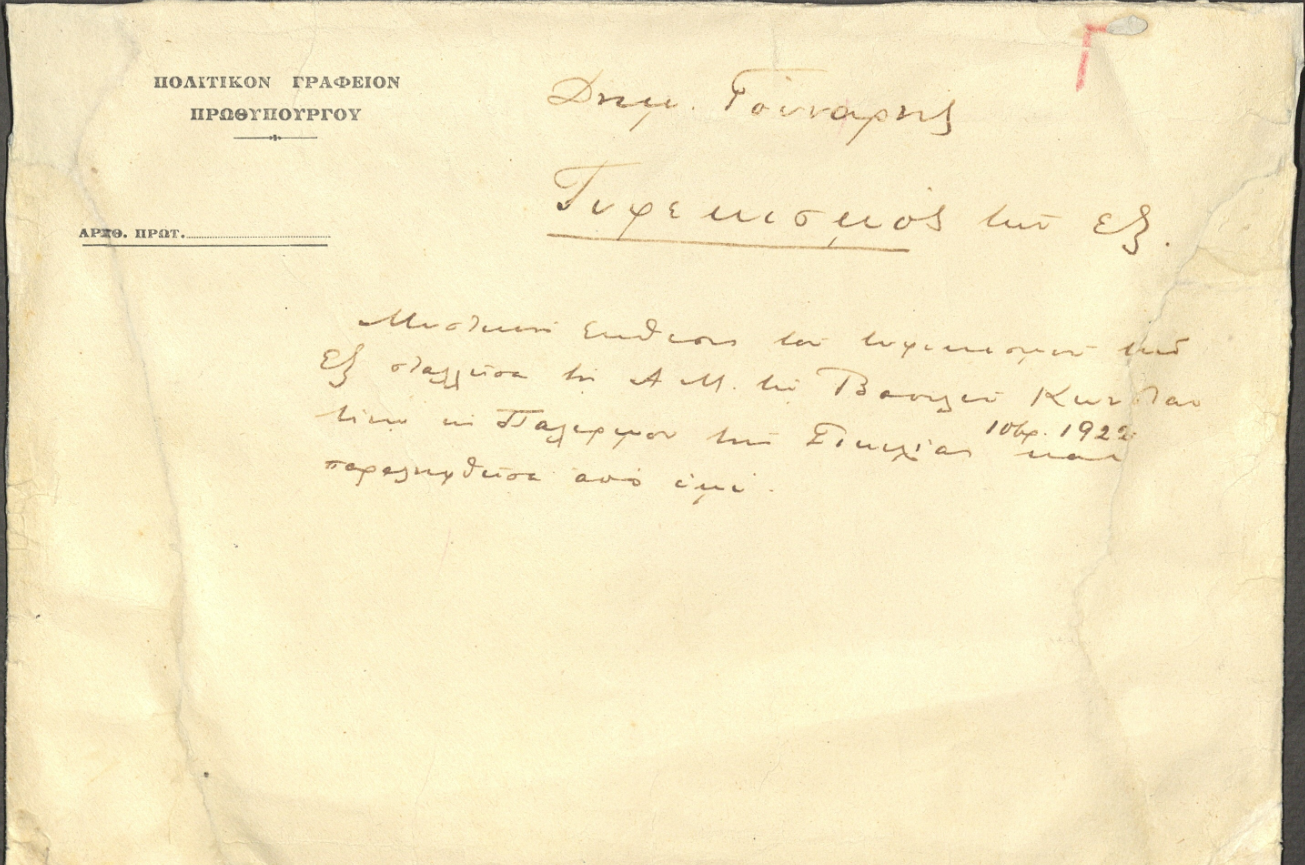 ΠΟΛΙΤΙΚΟΝ ΓΡΑΦΕΙΟΝ
ΠΡΩΘΥΠΟΥΡΓΟΥ
ΑΡΙΘ. ΠΡΩΤ.
Γ
Δημ. Γούναρης
Τυφεκισμός των Εξ.
Μυστική Έκθεσις του τυφεκισμού των
Εξ σταλείσα τη Α. Μ. τω Βασιλεί Κωνσταν
τίνω εις Παλέρμον της Σικελίας 10βρ. 1922 και
παραληφθείσα από εμέ.